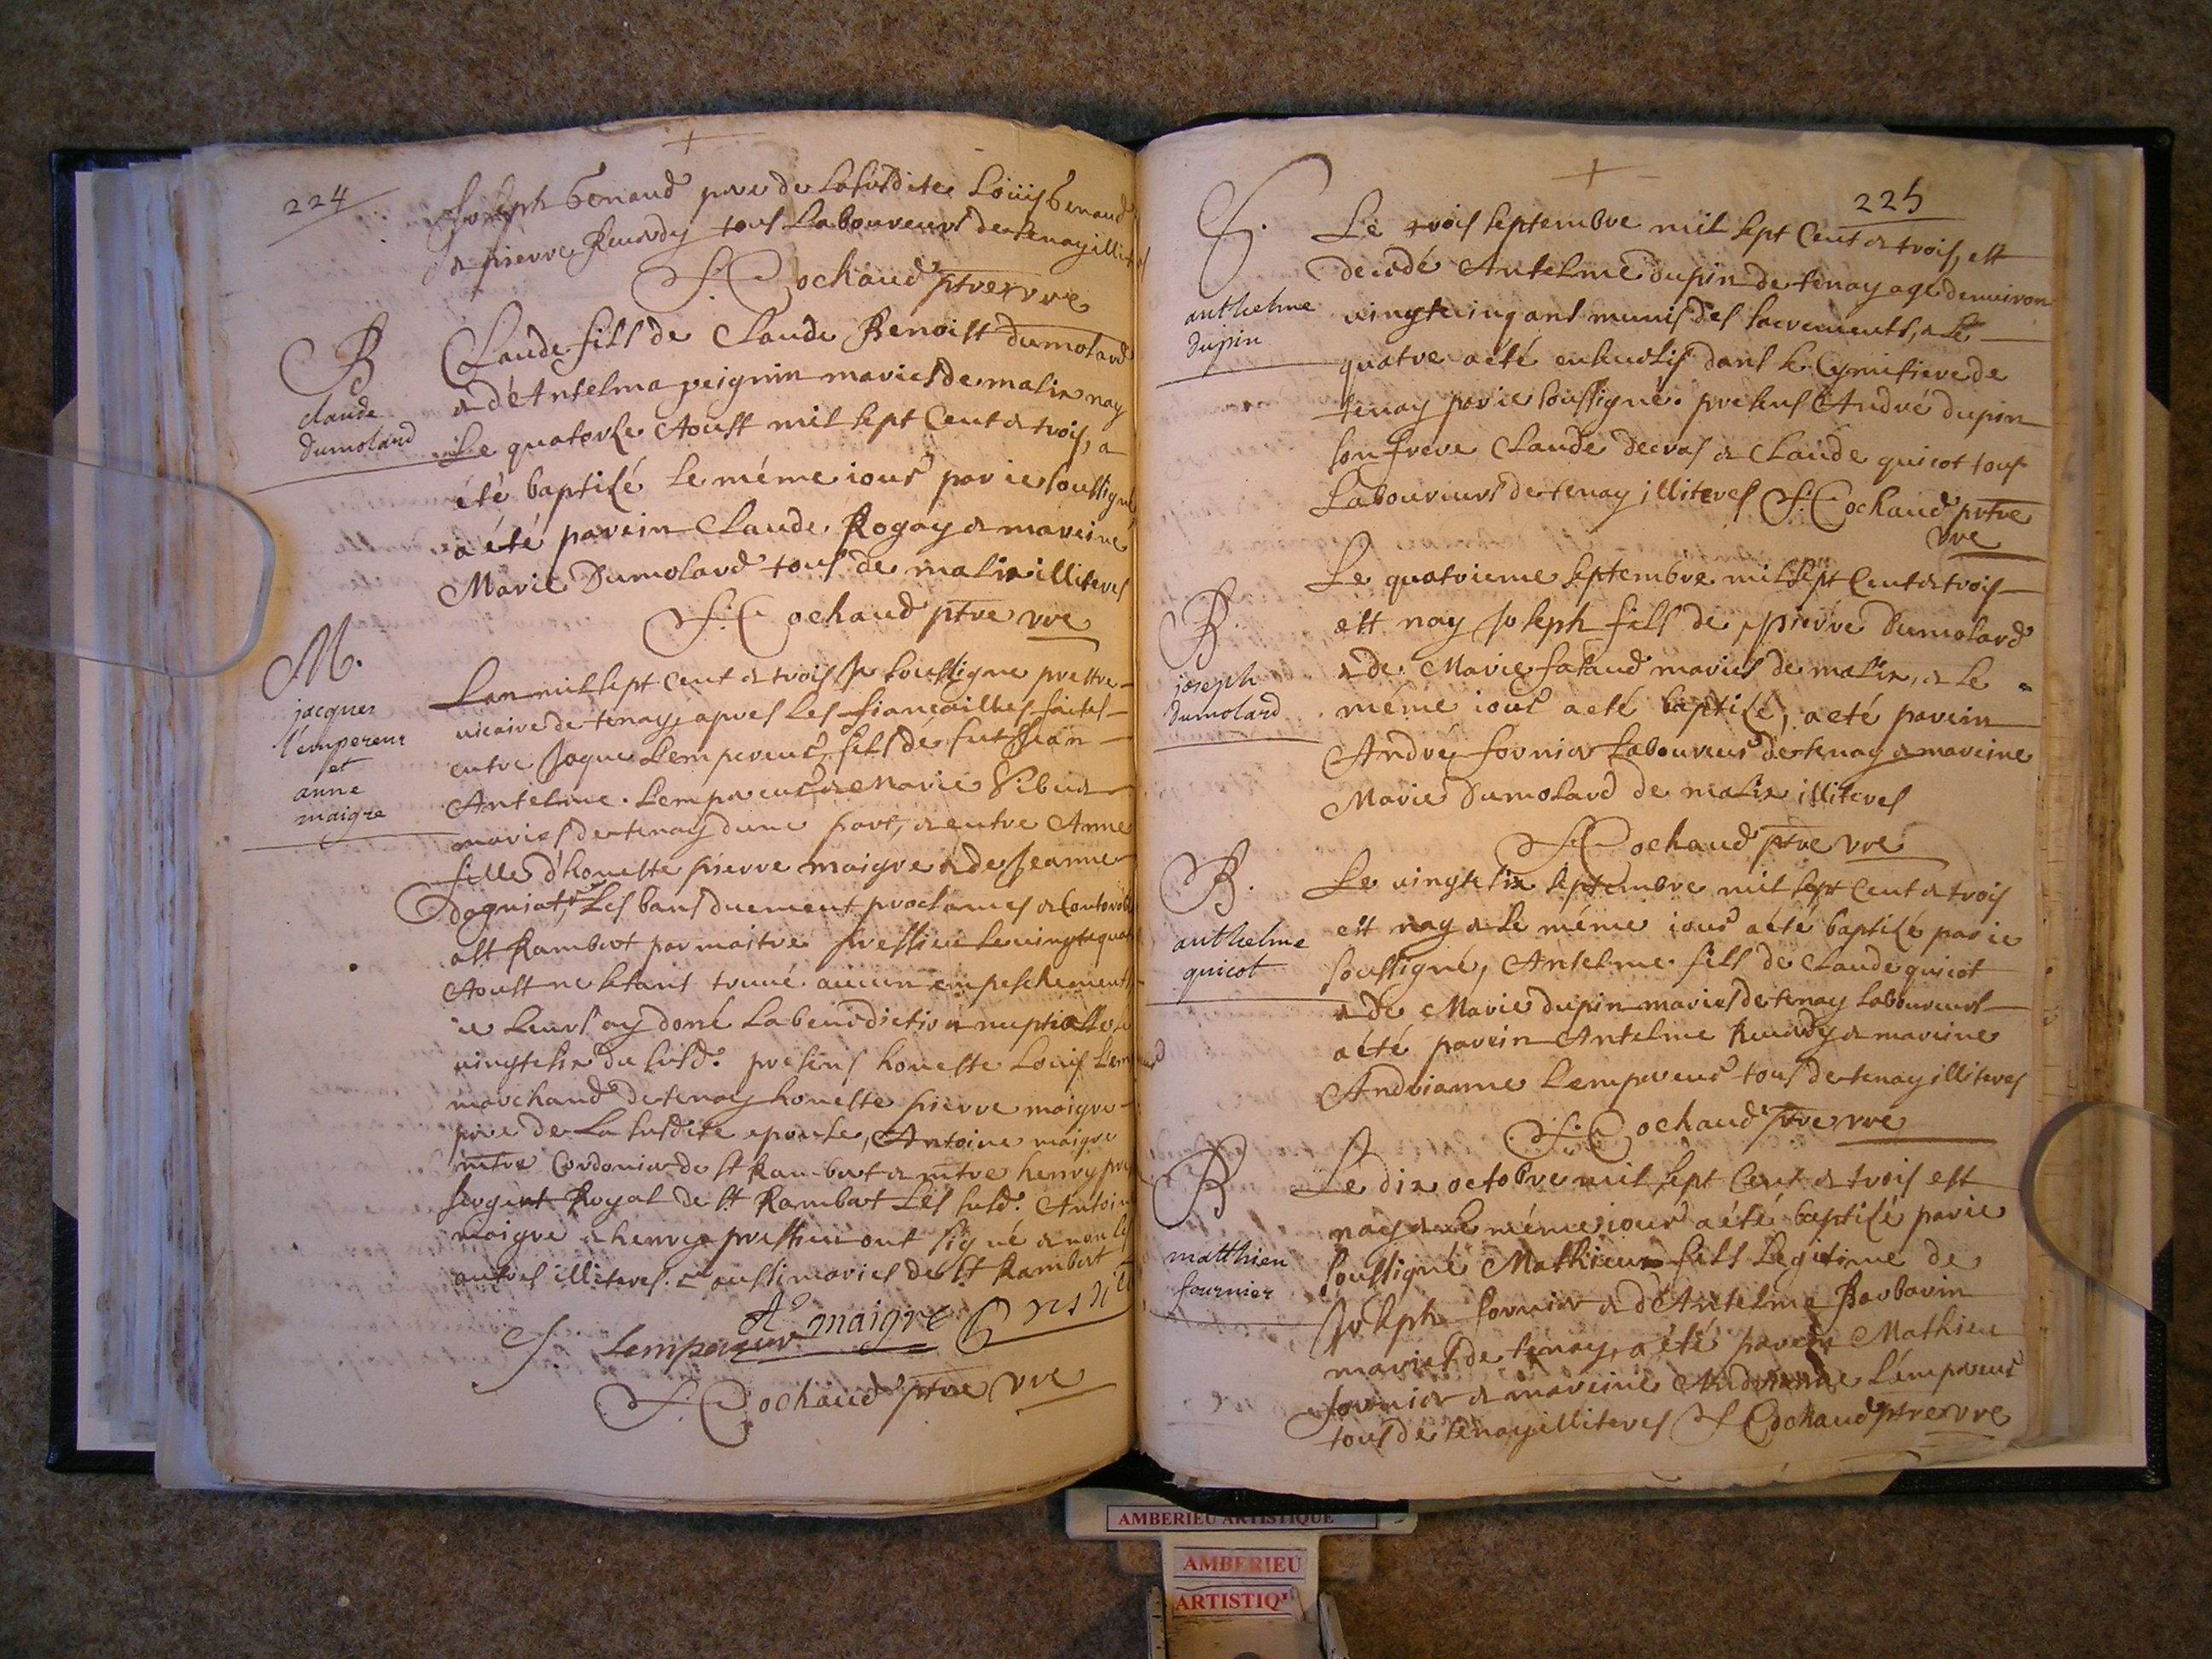 224
Joseph Genaud pere de la susdite Loüis Genaud
& pierre Reuerdy tous Laboureurs de tenay illiteres
F. Cochaud ptre vre
B
claude
dumolard
Claude fils de Claude Benoist dumolard
& d'Antelma peignin mariés de malix nay
le quatorze Aoust mil sept Cent & trois, a
été baptisé le même iour par ie soussigné
a été parein Claude Rogay & mareine
Marie Dumolard tous de malix illiteres
F. Cochaud ptre vre
M.
jacques
l'empereur
et
anne
maigre
L'an mil sept Cent & trois Je soussigne prestre
vicaire de tenay, apres les fiancailles faites
entre Jaque Lempereur fils de fut Jean
Antelme Lempereur & Marie
mariés de tenay dune part, & entre Anne
fille d'honeste pierre maigre & de Jeanne
Dagniat, Les bans duement proclames &
a St Rambert par maitre pressieu le vingtquatre
Aoust ne s'etant trouué aucun empeschement
ie leurs ay doné La benediction nuptialle le
vingtesix du susd. presens honeste Louis Lempereur
marchand de tenay honeste pierre maigre
pere de La susdite epouse, Antoine maigre
mtre Cordonier de St Rambert & mtre henry pressieu
sergent Royal de St Rambert Les susd. Antoine
maigre & henry pressieu ont signé & non les
autres illiteres. aussi mariés de St Rambert
At maigre
Lempereur
F. Cochaud ptre vre
225
S.
anthelme
dupin
Le trois septembre mil sept Cent & trois, est
decedé Antelme dupin de tenay agé denuiron
vingtcinq ans munis des sacrements, & le
quatre a été enseuelis dans le Cymitiere de
tenay par ie soussigné. presens André dupin
son frere Claude decras & Claude quicot tous
Laboureurs de tenay illiteres F. Cochaud prtre
vre
B.
joseph
dumolard
Le quatrieme septembre mil sept Cent & trois
est nay Joseph fils de pierre Dumolard
& de Marie falaud mariés de malix, & le
même iour a eté baptisé, a eté parein
André fornier Laboureur de tenay & mareine
Marie Dumolard de malix illiteres
F. Cochaud ptre vre
B.
anthelme
quicot
Le vingtesix septembre mil sept Cent & trois
est nay & le même iour a été baptisé par ie
soussigné, Antelme fils de Claude quicot
& de Marie dupin mariés de tenay Laboureurs
a été parein Antelme Reuerdy & mareine
Andrianne Lempereur tous de tenay illiteres
F. Cochaud ptre vre
B
matthieu
fournier
Le dix octobre mil sept Cent & trois est
nay & le même iour a été baptisé par ie
soussigné Mathieu fils Legitime de
Joseph fornier & d'Antelma Barbarin
mariés de tenay, a été parein Mathieu
fornier & mareine Andrianne L'empereur
tous de tenay illiteres F Cochaud ptre vre
AMBERIEU ARTISTIQUE
AMBERIEU
ARTISTIQU